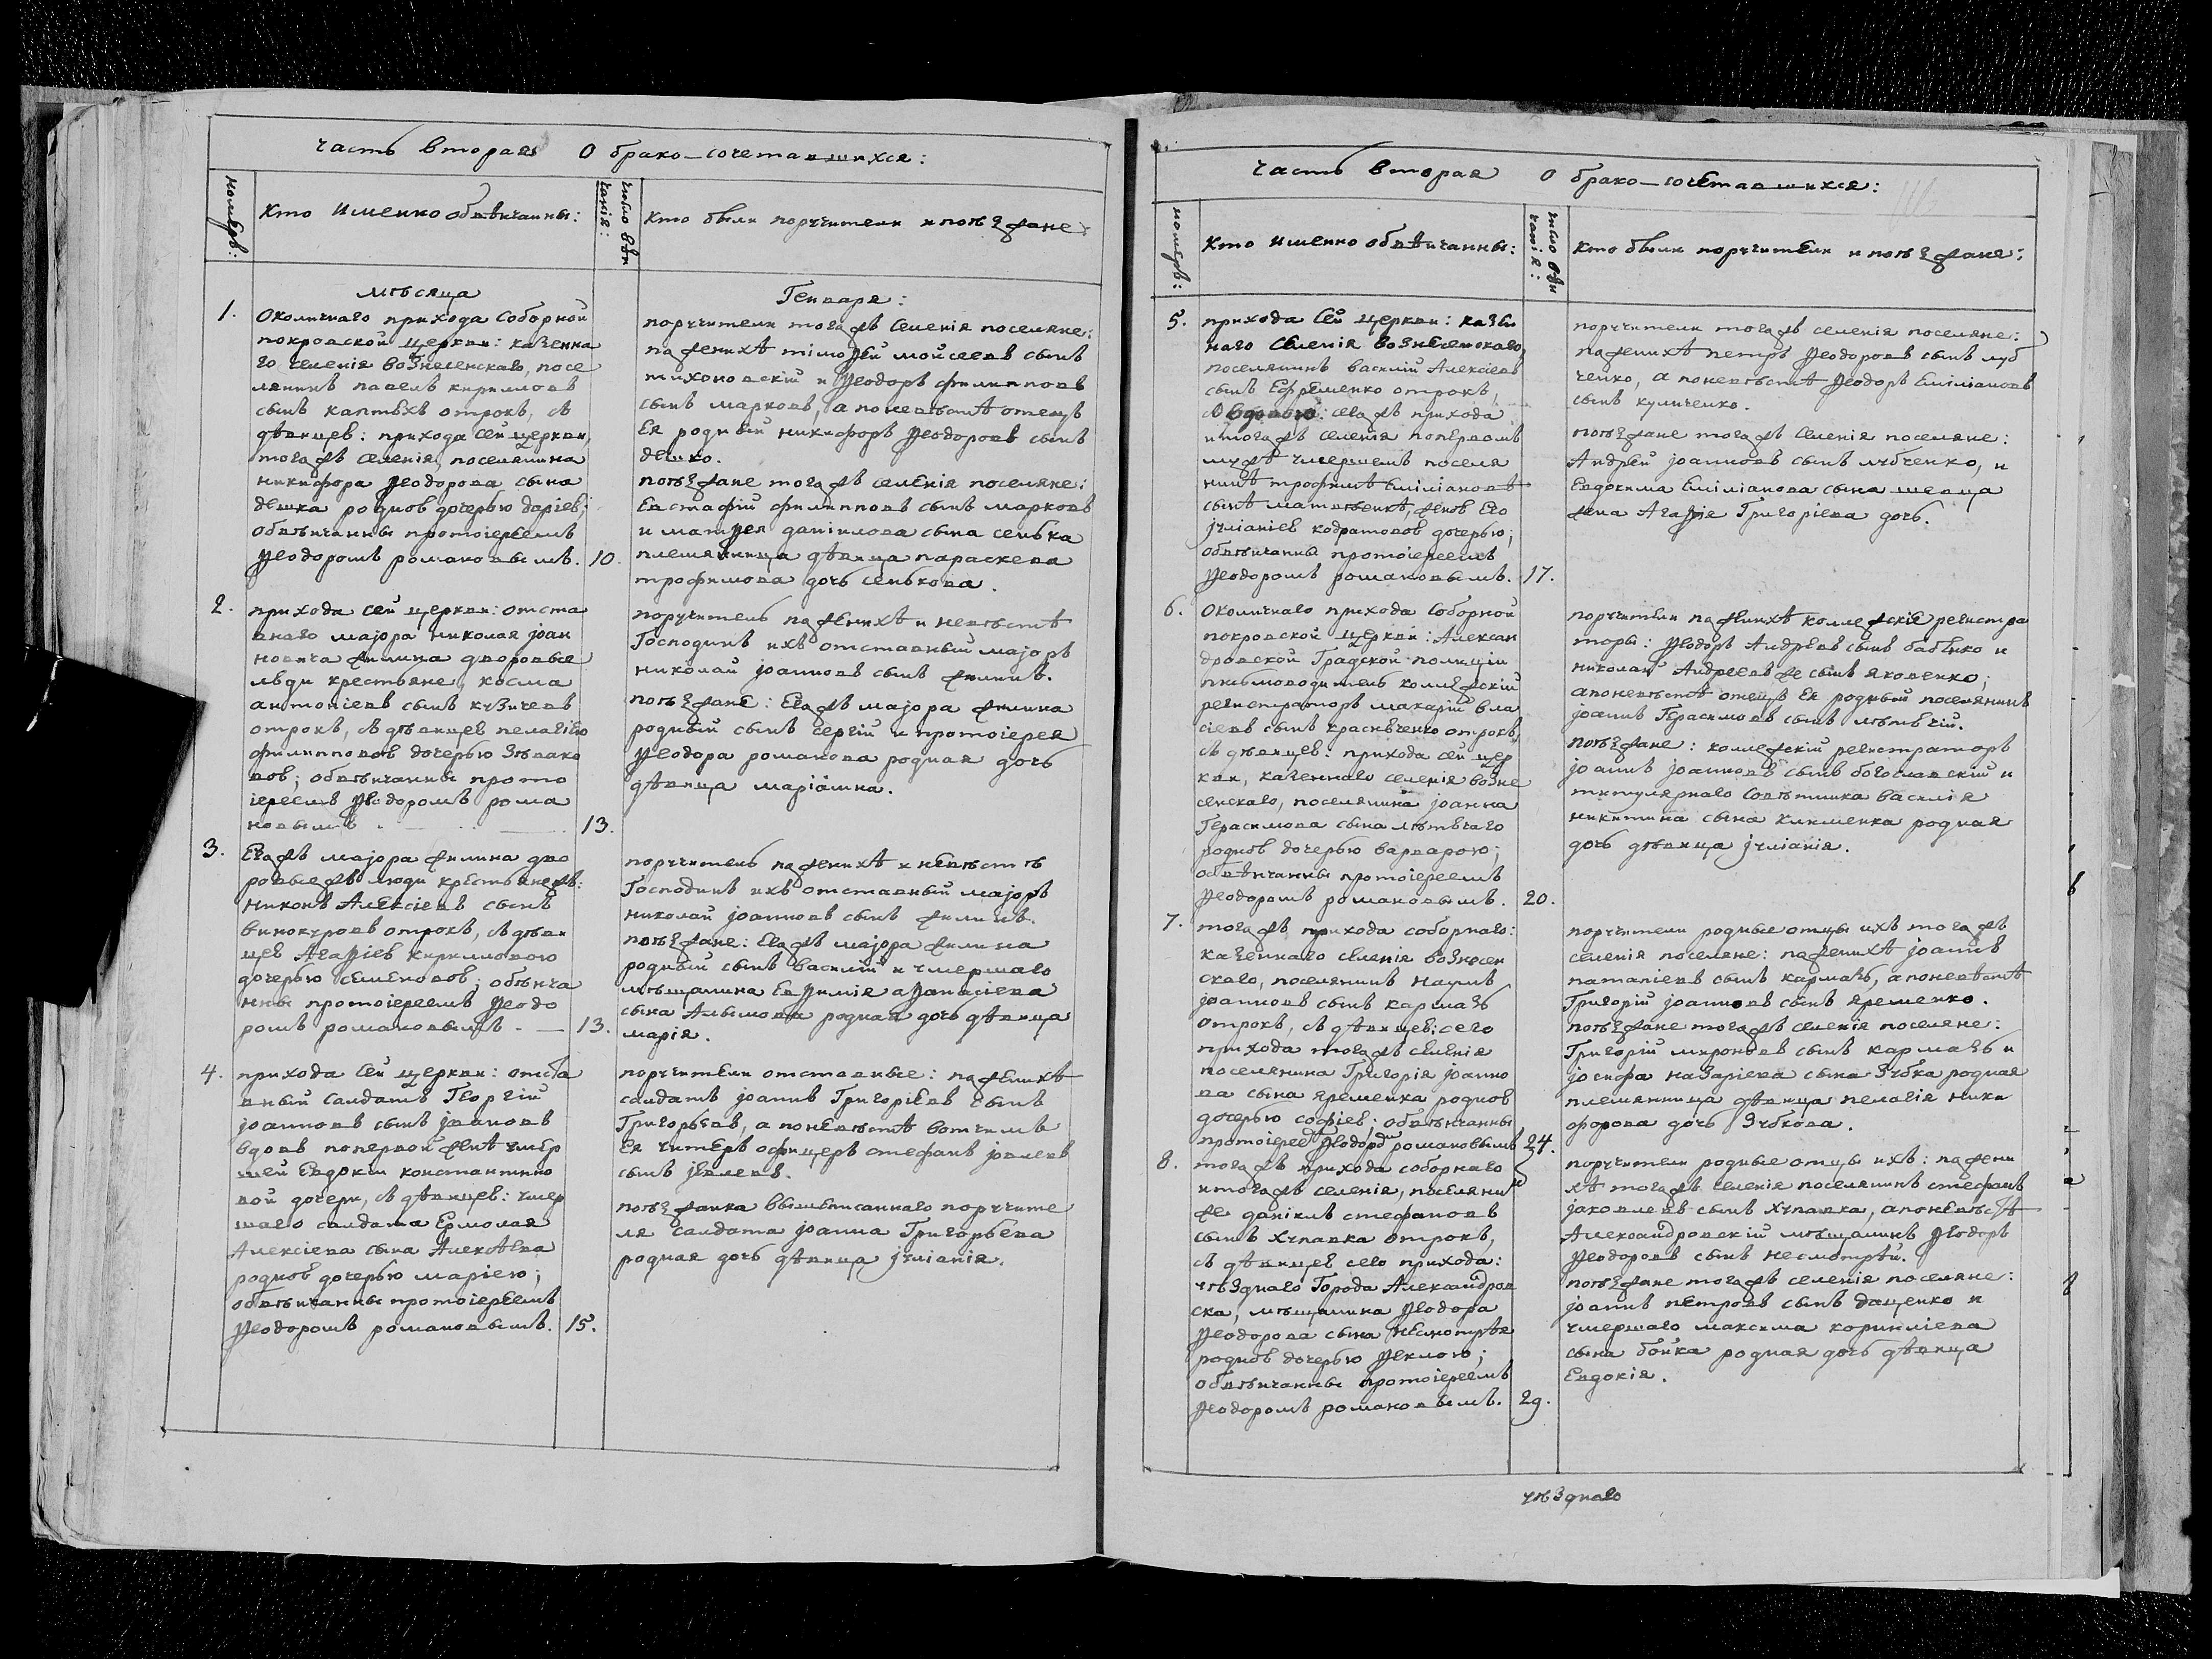 часть вторая О брако-сочетавшихся:
номеръ:
Кто Именно обвѣнчанны:
число вѣн
чанія:
Кто были поручители и поѣзжане:
мѣсяца
Генваря:
1.
Околичнаго прихода Соборной
покровской церкви: казенна
го селенія вознесенскаго, посе
лянинъ павелъ кирилловъ
сынъ каптѣхъ отрокъ, съ
дѣвицею: прихода сей церкви,
тогожъ селенія, поселянина
никифора Ѳеодорова сына
дешка родною дочерью даріею;
обвѣнчанны протоіереемъ
Ѳеодоромъ романовымъ.
10.
поручители тогожъ селенія поселяне:
пожених тімоѳей мойсеевъ сынъ
тихоновскій и Ѳеодоръ филипповъ
сынъ марковъ, а поневѣстѣ отецъ
Ея родный никифоръ Ѳеодоровъ сынъ
дешко.
поѣзжане тогожъ селенія поселяне:
Евстафій филипповъ сынъ марковъ
и матѳея даніилова сына сенька
племянница дѣвица параскева
трофимова дочь сенькова.
2.
прихода сей церкви: отста
внаго маіора николая јоан
новича жилина дворовые
люди крестьяне, косма
антоніевъ сынъ кузичевъ
отрокъ, съ дѣвицею пелагіею
филипповою дочерью
обвѣнчанны прото
іереемъ Ѳеодоромъ рома
новымъ
13.
поручитель поженихѣ и невѣстѣ
Господинъ ихъ отставный маіоръ
николай јоанновъ сынъ жилинъ.
поѣзжане: Егожъ маіора жилина
родный сынъ сергій и протоіерея
Ѳеодора романова родная дочь
дѣвица маріамна.
3.
Егожъ маіора жилина дво
ровыежъ люди крестьянежъ:
никонъ Алексіевъ сынъ
винокуровъ отрокъ, съ дѣви
цею Агаѳіею кирилловою
дочерью семеновою; обвѣнча
нны протоіереемъ Ѳеодо
ромъ романовымъ.
13.
поручитель поженихѣ и невѣстѣ
Господинъ ихъ отставный маіоръ
николай јоанновъ сынъ жилинъ.
поѣзжане: Егожъ маіора жилина
родный сынъ василій и умершаго
мѣщанина Евѳимія аѳанасіева
сына Алымова родная дочь дѣвица
марія.
4.
прихода сей церкви: отста
вный салдатъ Георгій
јоанновъ сынъ јвановъ
вдовъ попервой женѣ умер
шей Евдокіи константино
вой дочери, съ дѣвицею: умер
шаго салдата Ермолая
Алексіева сына Алексѣева
родною дочерью маріею;
обвѣнчанны протоіереемъ
Ѳеодоромъ романовымъ.
15.
поручители отставные: поженихѣ
салдатъ јоаннъ Григоріевъ сынъ
Григорьевъ, а поневѣстѣ вотчимъ
Ея унтеръ офицеръ стефанъ јовлевъ
сынъ јевлевъ.
поѣзжанка вышеписаннаго поручите
ля салдата јоанна Григорьева
родная дочь дѣвица јуліанія.
часть вторая О брако-сочетавшихся:
номеръ:
Кто именно обвѣнчанны:
число вѣн
чанія:
Кто были поручители и поѣзжане:
5.
прихода сей церкви: казен
наго селенія вознесенскаго,
поселянинъ василій Алексіевъ
сынъ Ефременко отрокъ,
со вдовою: сегожъ прихода
итогожъ селенія попервомъ
мужѣ умершемъ поселя
нинѣ трофимѣ Еміліановѣ
сынѣ матвѣенкѣ, женою Его
јуліаніею кодратовою дочерью;
обвѣнчанны протоіереемъ
Ѳеодоромъ романовымъ.
17.
поручители тогожъ селенія поселяне:
поженихѣ петръ Ѳеодоровъ сынъ луб
ченко, а поневѣстѣ Ѳеодоръ Еміліановъ
сынъ куличенко.
поѣзжане тогожъ селенія поселяне:
Андрей јоанновъ сынъ лубченко, и
Евдокима Еміліанова сына шевца
жена Агаѳія Григоріева дочь.
6.
Околичнаго прихода Соборной
покровской церкви: Алексан
дровской Градской полиціи
письмоводитель коллежскій
регистраторъ макарій вла
сіевъ сынъ красюченко отрокъ,
съ дѣвицею: прихода сей цер
кви, казеннаго селенія возне
сенскаго, поселянина јоанна
Герасимова сына
родною дочерью варварою;
обвѣнчанны протоіереемъ
Ѳеодоромъ романовымъ.
20.
поручители поженихѣ коллежскіе регистра
торы: Ѳеодоръ Андреевъ сынъ бабенко и
николай Андреевъ же сынъ яковенко;
апоневѣстѣ отецъ Ея родный поселянинъ
јоаннъ Герасимовъ сынъ
поѣзжане: коллежскій регистраторъ
јоаннъ јоанновъ сынъ богославскій и
титулярнаго совѣтника василія
никитина сына клименка родная
дочь дѣвица јуліанія.
7.
тогожъ прихода соборнаго:
казеннаго селенія вознесен
скаго, поселянинъ наумъ
јоанновъ сынъ кармазь
отрокъ, съ дѣвицею: сего
прихода тогожъ селенія
поселянина Григорія јоанно
ва сына яременка родною
дочерью софіею; обвѣнчанны
протоіереемъ Ѳеодоромъ романовымъ
24.
поручители родные отцы ихъ тогожъ
селенія поселяне: поженихѣ јоаннъ
паталіевъ сынъ кармазь, апоневѣстѣ
Григорій јоанновъ сынъ яременко.
поѣзжане тогожъ селенія поселяне:
Григорій мироновъ сынъ кармазь и
јосифа назаріева сына зубка родная
племянница дѣвица пелагія ники
форова дочь зубкова.
8.
тогожъ прихода соборнаго
итогожъ селенія, поселянин
же даніилъ стефановъ
сынъ хупавка отрокъ,
съ дѣвицею сего прихода:
уѣзднаго Города Александров
ска, мѣщанина Ѳеодора
Ѳеодорова сына несмотрѣя
родною дочерью Ѳеклою;
обвѣнчанны протоіереемъ
Ѳеодоромъ романовымъ.
29.
поручители родные отцы ихъ: пожени
хѣ тогожъ селенія поселянинъ стефанъ
јаковлевъ сынъ хупавка, апоневѣстѣ
Александровскій мѣщанинъ Ѳеодоръ
Ѳеодоровъ сынъ несмотрѣй.
поѣзжане тогожъ селенія поселяне:
јоаннъ петровъ сынъ даценко и
умершаго максима корниліева
сына бойка родная дочь дѣвица
Евдокія.
уѣзднаго